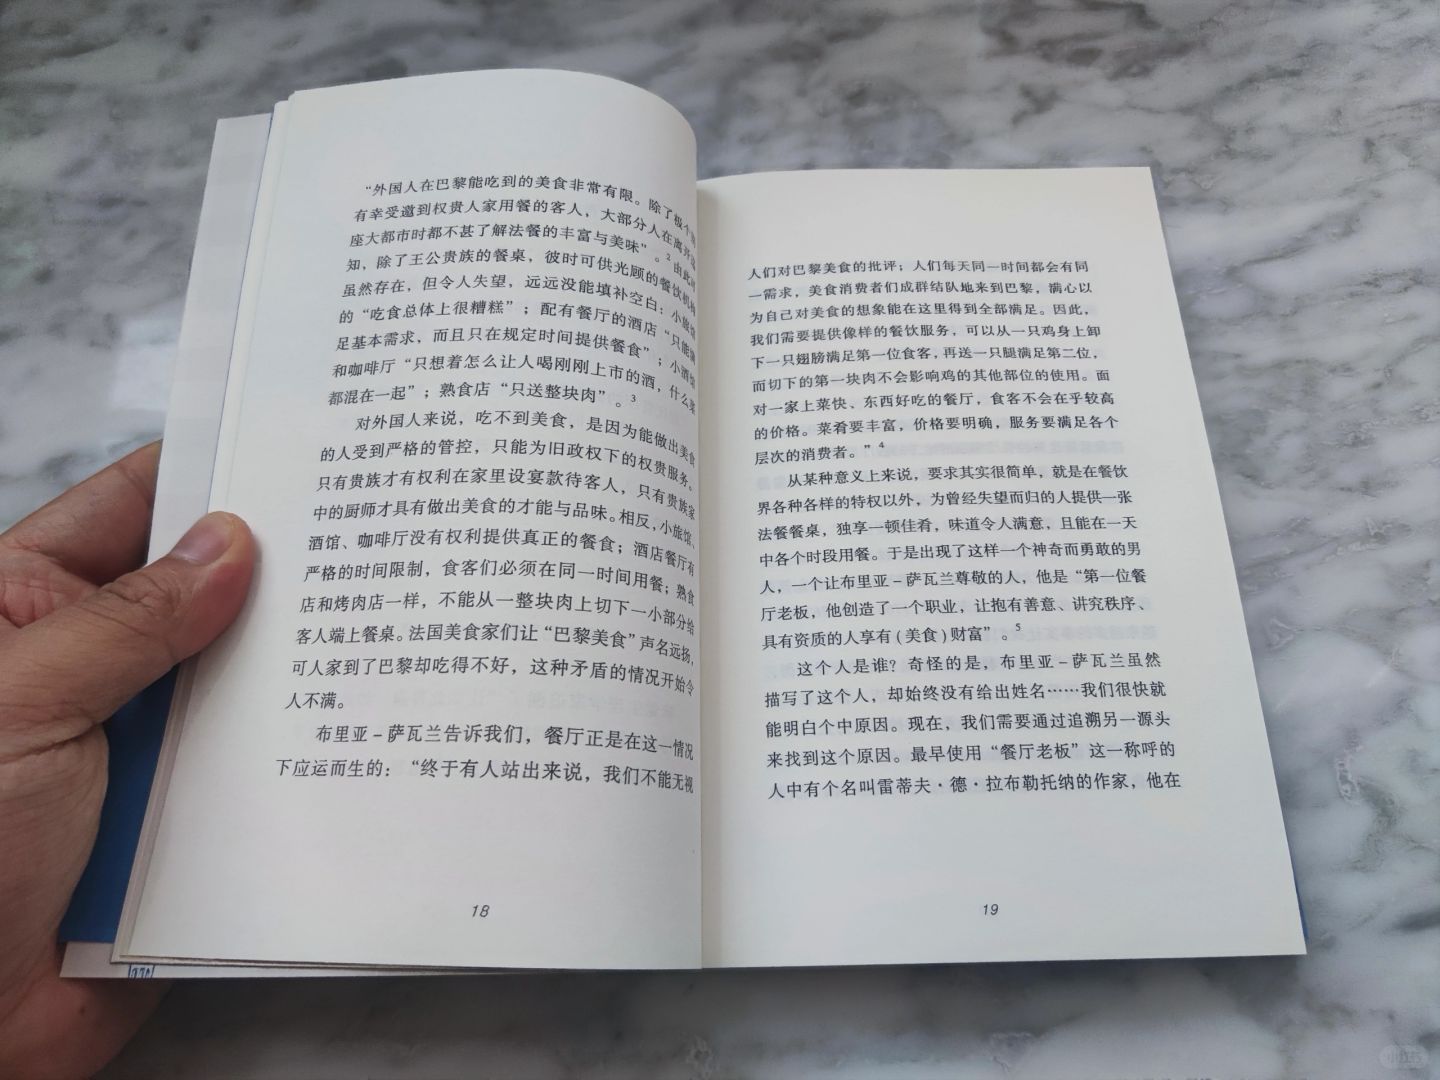 “外国人在巴黎能吃到的美食非常有限。除了极个别
有幸受邀到权贵人家用餐的客人，大部分人在离开这
座大都市时都不甚了解法餐的丰富与美味”。²由此可
知，除了王公贵族的餐桌，彼时可供光顾的餐饮机构
虽然存在，但令人失望，远远没能填补空白：小旅馆
的“吃食总体上很糟糕”；配有餐厅的酒店“只能满
足基本需求，而且只在规定时间提供餐食”；小酒馆
和咖啡厅“只想着怎么让人喝刚刚上市的酒，什么菜
都混在一起”；熟食店“只送整块肉”。³
对外国人来说，吃不到美食，是因为能做出美食
的人受到严格的管控，只能为旧政权下的权贵服务。
只有贵族才有权利在家里设宴款待客人，只有贵族家
中的厨师才具有做出美食的才能与品味。相反，小旅馆、
酒馆、咖啡厅没有权利提供真正的餐食；酒店餐厅有
严格的时间限制，食客们必须在同一时间用餐；熟食
店和烤肉店一样，不能从一整块肉上切下一小部分给
客人端上餐桌。法国美食家们让“巴黎美食”声名远扬，
可人家到了巴黎却吃得不好，这种矛盾的情况开始令
人不满。
布里亚－萨瓦兰告诉我们，餐厅正是在这一情况
下应运而生的：“终于有人站出来说，我们不能无视
18
人们对巴黎美食的批评；人们每天同一时间都会有同
一需求，美食消费者们成群结队地来到巴黎，满心以
为自己对美食的想象能在这里得到全部满足。因此，
我们需要提供像样的餐饮服务，可以从一只鸡身上卸
下一只翅膀满足第一位食客，再送一只腿满足第二位，
而切下的第一块肉不会影响鸡的其他部位的使用。面
对一家上菜快、东西好吃的餐厅，食客不会在乎较高
的价格。菜肴要丰富，价格要明确，服务要满足各个
层次的消费者。”⁴
从某种意义上来说，要求其实很简单，就是在餐饮
界各种各样的特权以外，为曾经失望而归的人提供一张
法餐餐桌，独享一顿佳肴，味道令人满意，且能在一天
中各个时段用餐。于是出现了这样一个神奇而勇敢的男
人，一个让布里亚－萨瓦兰尊敬的人，他是“第一位餐
厅老板，他创造了一个职业，让抱有善意、讲究秩序、
具有资质的人享有(美食)财富”。⁵
这个人是谁？奇怪的是，布里亚－萨瓦兰虽然
描写了这个人，却始终没有给出姓名……我们很快就
能明白个中原因。现在，我们需要通过追溯另一源头
来找到这个原因。最早使用“餐厅老板”这一称呼的
人中有个名叫雷蒂夫·德·拉布勒托纳的作家，他在
19
小红书